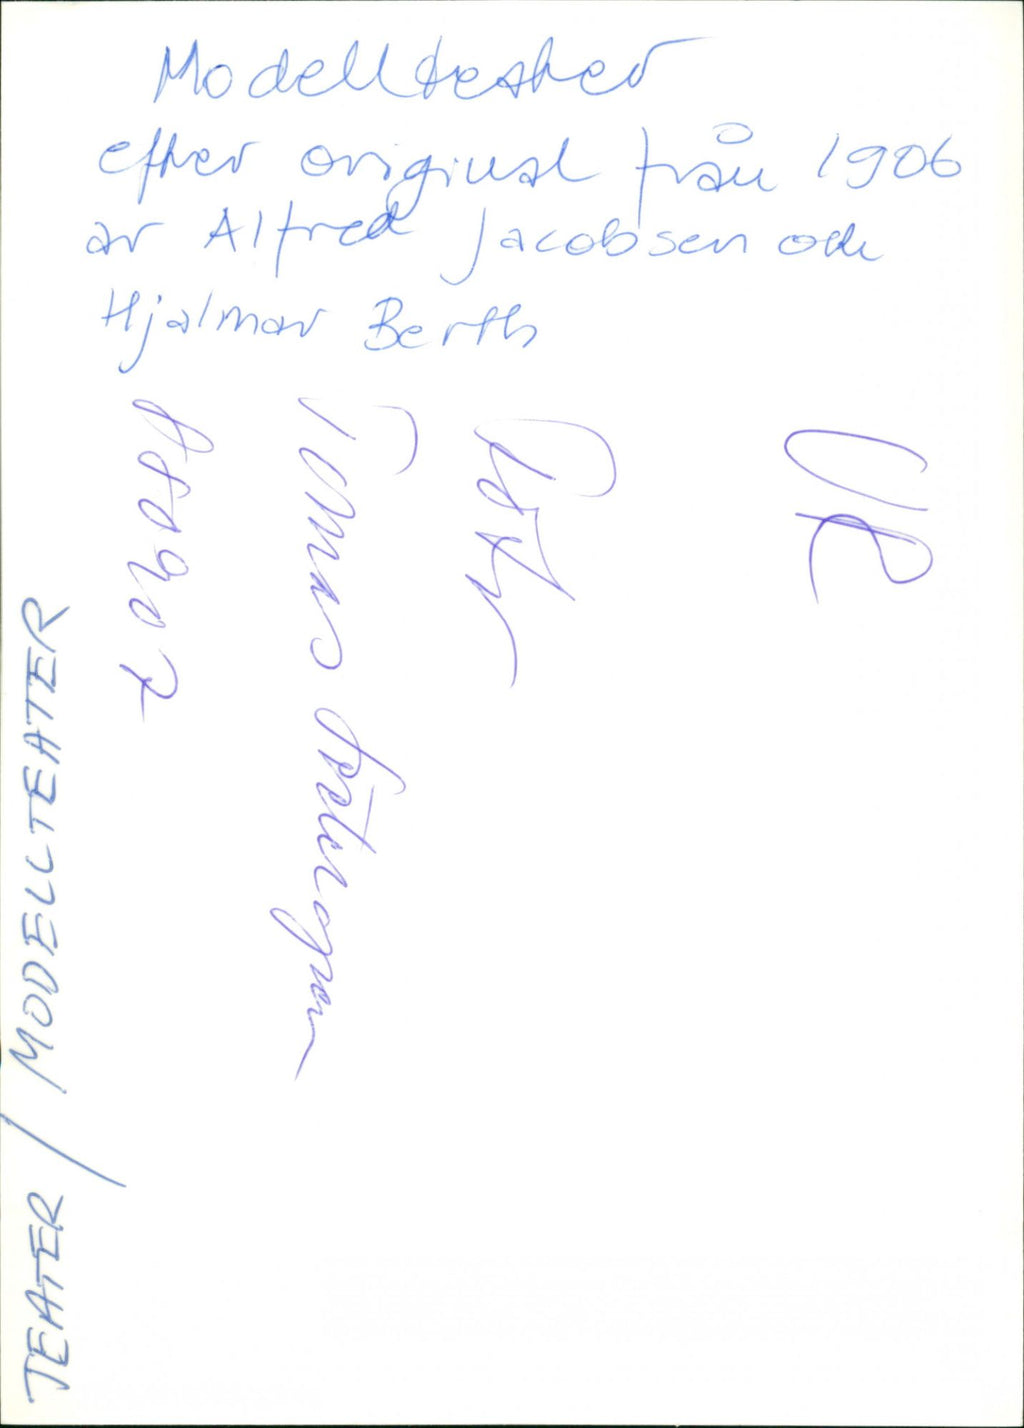 Modellteater
efter original från 1906
av Alfred Jacobsen och
Hjalmar Berth
880907
Tomas Östergren
UR
TEATER / MODELLTEATER